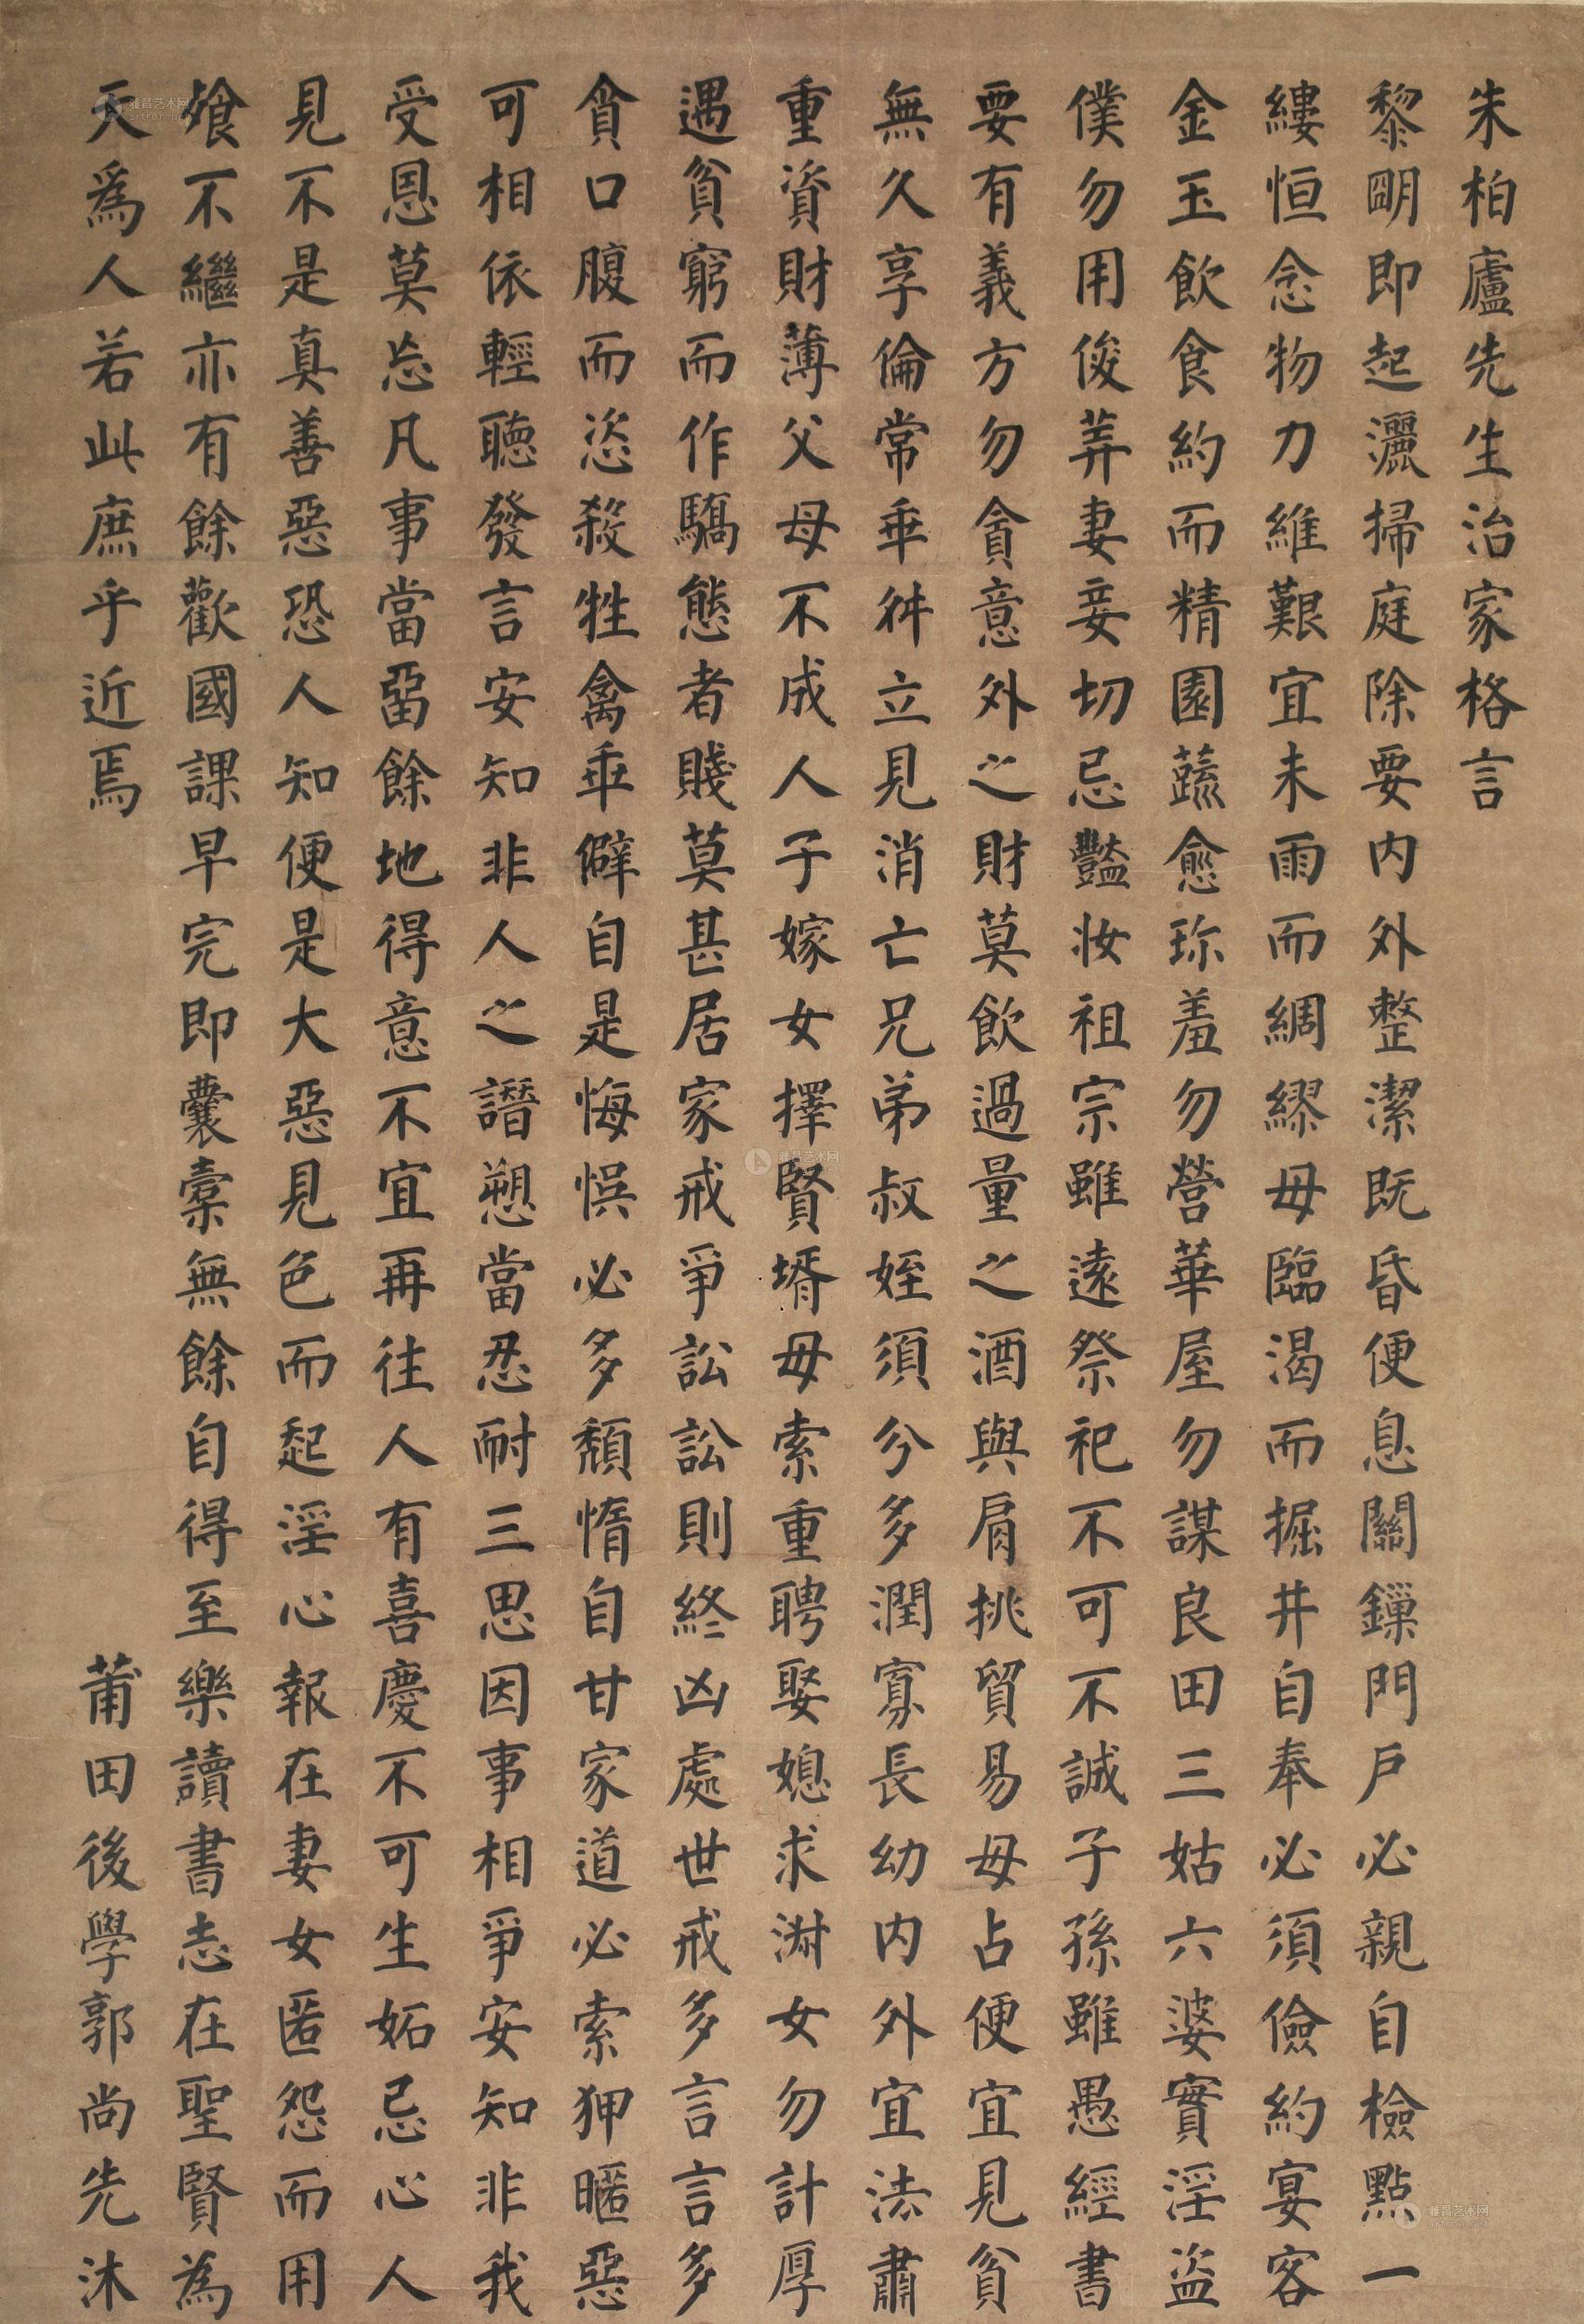 朱柏廬先生治家格言
黎明即起灑掃庭除要内外整潔既昏便息關鏁門戶必親自檢點一
縷恒念物力維艱宜未雨而綢繆毋臨渴而掘井自奉必須儉約宴客
金玉飲食約而精園蔬愈珎羞勿營華屋勿謀良田三姑六婆實淫盜
僕勿用俊美妻妾切忌豔妝祖宗雖遠祭祀不可不誠子孫雖愚經書
要有義方勿貪意外之財莫飲過量之酒與肩挑貿易毋占便宜見貧
無久享倫常乖舛立見消亡兄弟叔姪須分多潤寡長幼内外宜法肅
重資財薄父母不成人子嫁女擇賢壻毋索重聘娶媳求淑女勿計厚
遇貧窮而作驕態者賤莫甚居家戒爭訟訟則終凶處世戒多言言多
貪口腹而恣殺牲禽乖僻自是悔悞必多頹惰自甘家道必索狎暱惡
可相依輕聽發言安知非人之譖愬當忍耐三思因事相爭安知非我
受恩莫忘凡事當留餘地得意不宜再往人有喜慶不可生妬忌心人
見不是真善惡恐人知便是大惡見色而起淫心報在妻女匿怨而用
飧不繼亦有餘歡國課早完即囊橐無餘自得至樂讀書志在聖賢為
天爲人若此庶乎近焉
莆田後學郭尚先沐
雅昌艺术网
artron.net
雅昌艺术网
雅昌艺术网